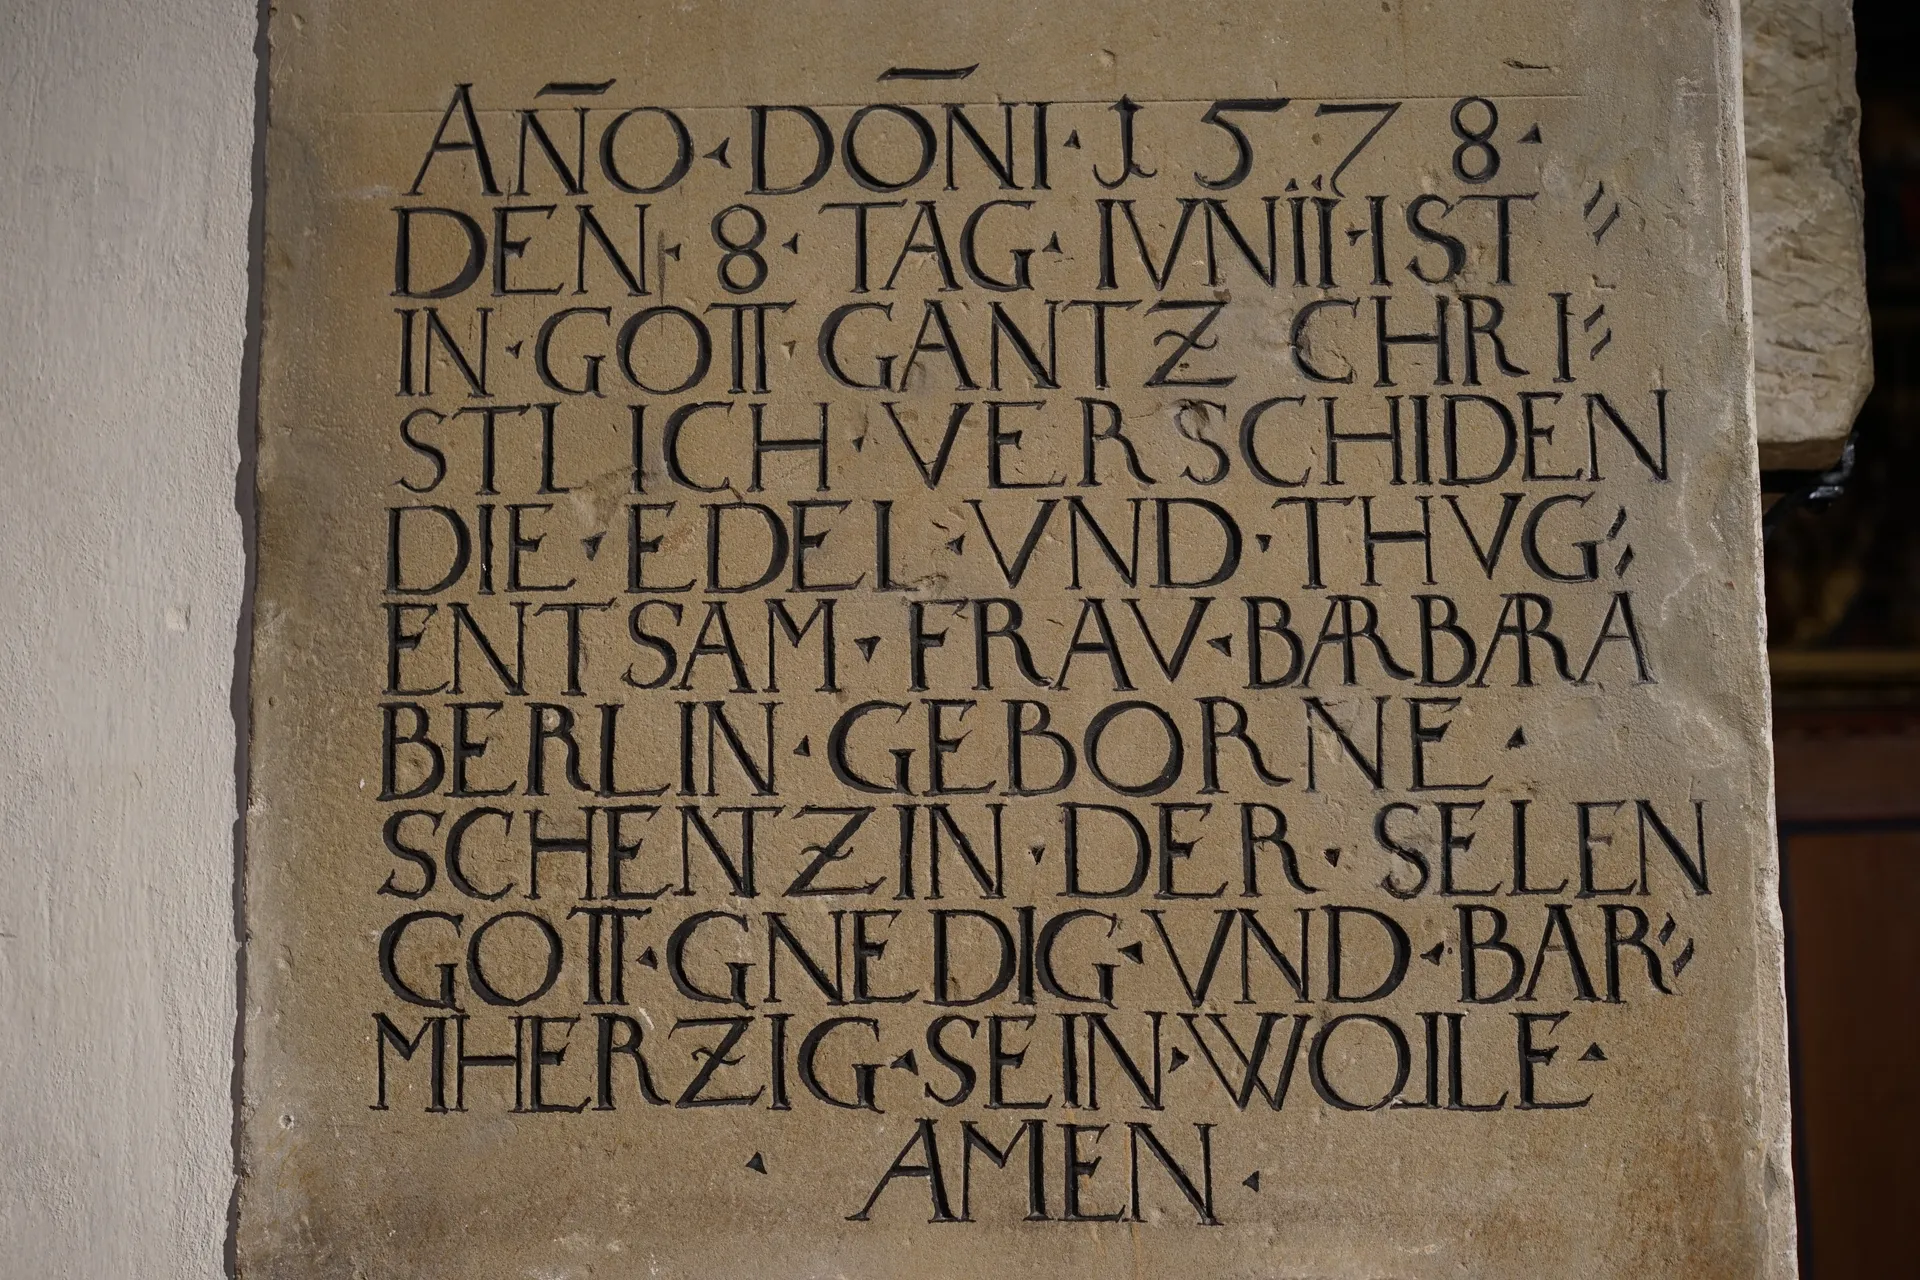 AÑO · DÕNI · 1578 ·
DEN · 8 · TAG · IVNII · IST //
IN · GOTT · GANTZ CHRI //
STLICH · VERSCHIDEN
DIE · EDEL · VND · THVG //
ENTSAM · FRAV · BARBARA
BERLIN · GEBORNE ·
SCHENTZIN · DER · SELEN
GOTT · GNEDIG · VND · BAR //
MHERZIG · SEIN · WOLLE ·
· AMEN ·